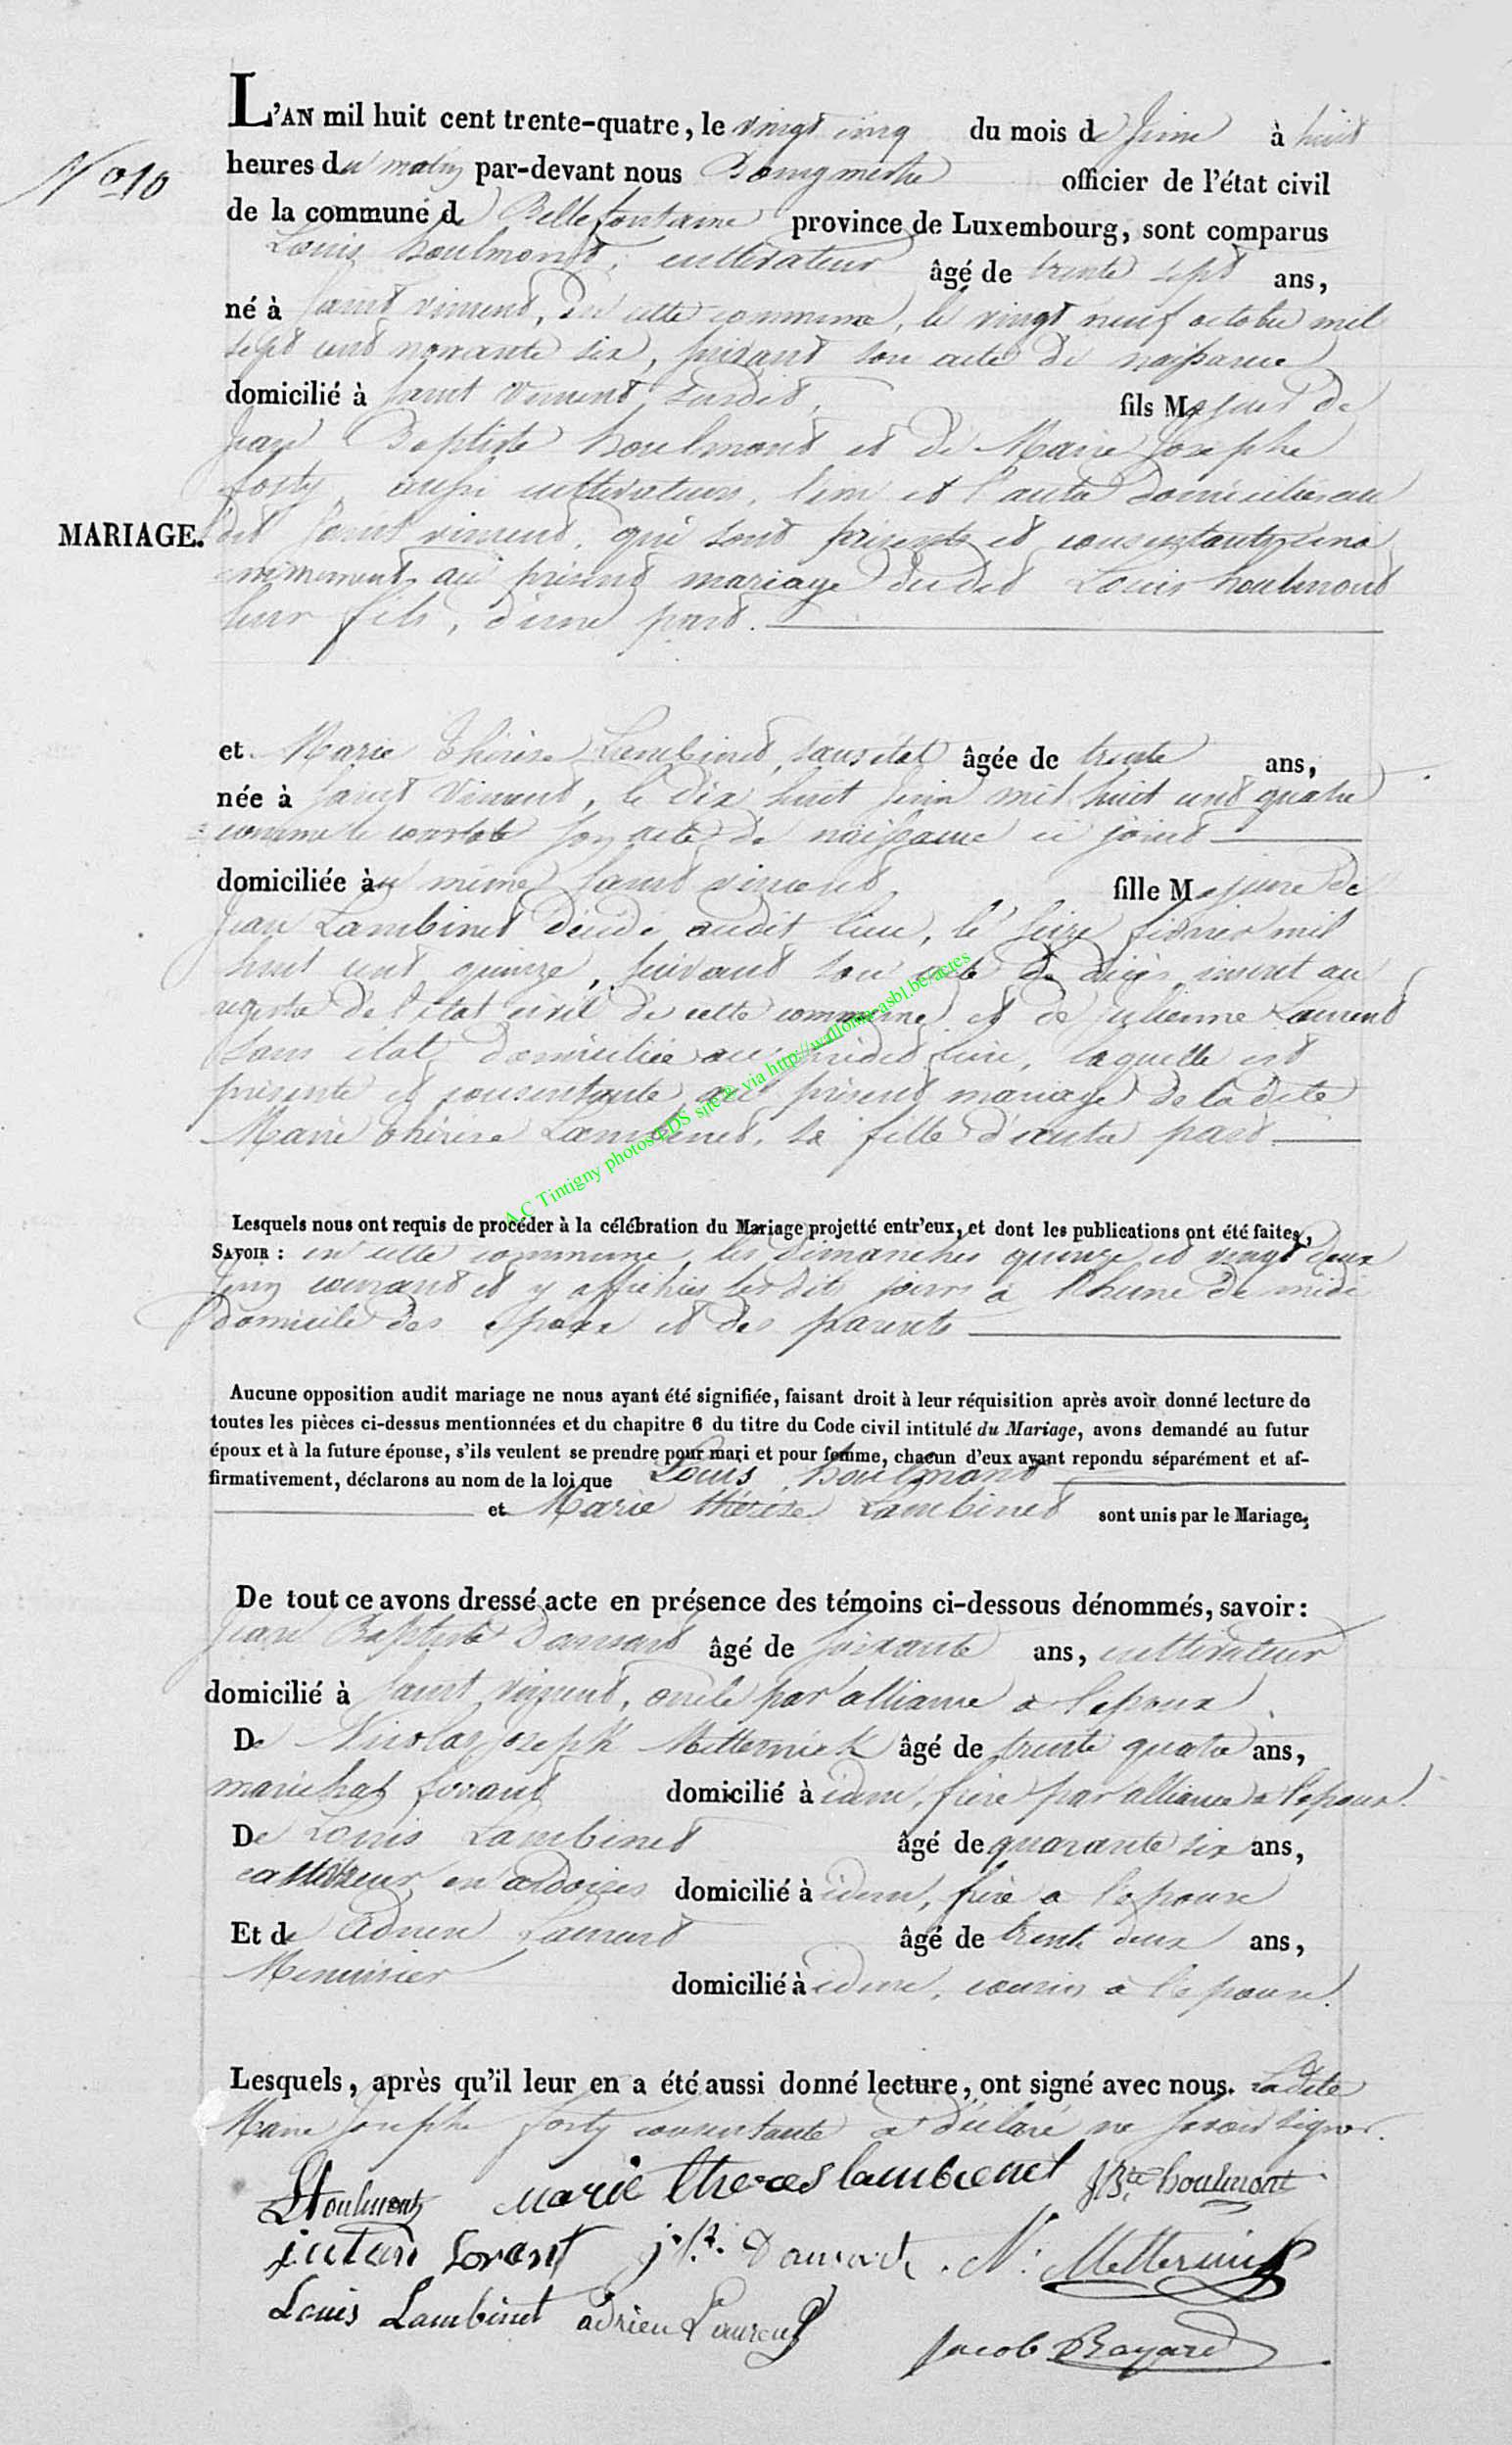 L'AN mil huit cent trente-quatre, le vingt cinq du mois de Juin à huit
No 10
heures du matin par-devant nous Bourgmestre officier de l'état civil
de la commune de Bellefontaine province de Luxembourg, sont comparus
Louis houlmont, cultivateur âgé de trente sept ans,
né à Saint Vincent, en cette commune, le vingt neuf octobre mil
sept cent nonante six, suivant son acte de naissance
domicilié à Saint Vincent susdit, fils Majeur de
Jean Baptiste houlmont et de Marie Josephe
forty, aussi cultivateurs, l'un et l'autre domiciliés au
MARIAGE.
dit Saint vincent, qui sont présents et consentants una
nimement au présent mariage dudit Louis houlmont
leur fils, d'une part.
et Marie thérèse Lambinet, sans état âgée de trente ans,
née à Saint Vincent, le dix huit Juin mil huit cent quatre
comme le constate son acte de naissance ci joint
domiciliée au même Saint vincent, fille Majeure de
Jean Lambinet décédé audit lieu, le seize février mil
huit cent quinze, suivant son acte de décès inscrit au
registre de l'état civil de cette commune, et de Julienne Laurent
sans état domiciliée au prédit lieu, laquelle est
présente et consentante au présent mariage de la dite
Marie thérèse Lambinet, sa fille d'autre part
A.C Tintigny photos LDS site @ via http://wallonia-asbl.be/actes
Lesquels nous ont requis de procéder à la célébration du Mariage projetté entr'eux, et dont les publications ont été faites,
SAVOIR : en cette commune, les dimanches quinze et vingt deux
Juin courant et y affichées lesdits jours à l'heure de midi
domicile des époux et des parents
Aucune opposition audit mariage ne nous ayant été signifiée, faisant droit à leur réquisition après avoir donné lecture de
toutes les pièces ci-dessus mentionnées et du chapitre 6 du titre du Code civil intitulé du Mariage, avons demandé au futur
époux et à la future épouse, s'ils veulent se prendre pour mari et pour femme, chacun d'eux ayant repondu séparément et af-
firmativement, déclarons au nom de la loi que Louis houlmont
et Marie thérèse Lambinet sont unis par le Mariage,
De tout ce avons dressé acte en présence des témoins ci-dessous dénommés, savoir:
Jean Baptiste Dansart âgé de soixante ans, cultivateur
domicilié à Saint vincent, oncle par alliance a l'epoux.
De Nicolas Joseph Metternich âgé de trente quatre ans,
maréchal ferrant domicilié à idem, frère par alliance a l'epoux.
De Louis Lambinet âgé de quarante six ans,
en ardoises domicilié à idem, frère a l'epouse
Et de Adrien Laurent âgé de trente deux ans,
Menuisier domicilié à idem, cousin à l'epouse.
Lesquels, après qu'il leur en a été aussi donné lecture, ont signé avec nous. Ladite
Marie Josephe forty consentante a déclaré ne savoir signer.
LHoulmont marie theres lambienet JBte houlmont
Lorant j.b. Dansart. N. Metternich
Louis Lambinet adrien Laurent
Jacob Bayard